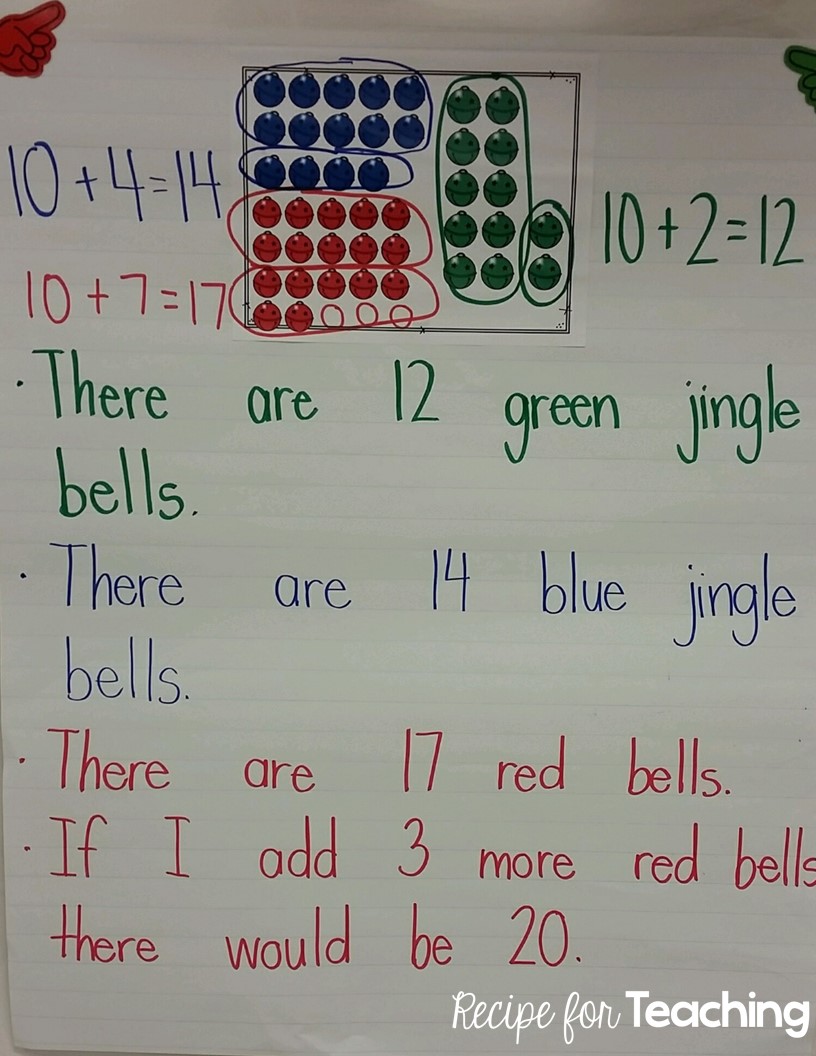 10+4=14
10+7=17
10+2=12
· There are 12 green jingle
bells.
· There are 14 blue jingle
bells.
· There are 17 red bells.
· If I add 3 more red bells
there would be 20.
Recipe for Teaching